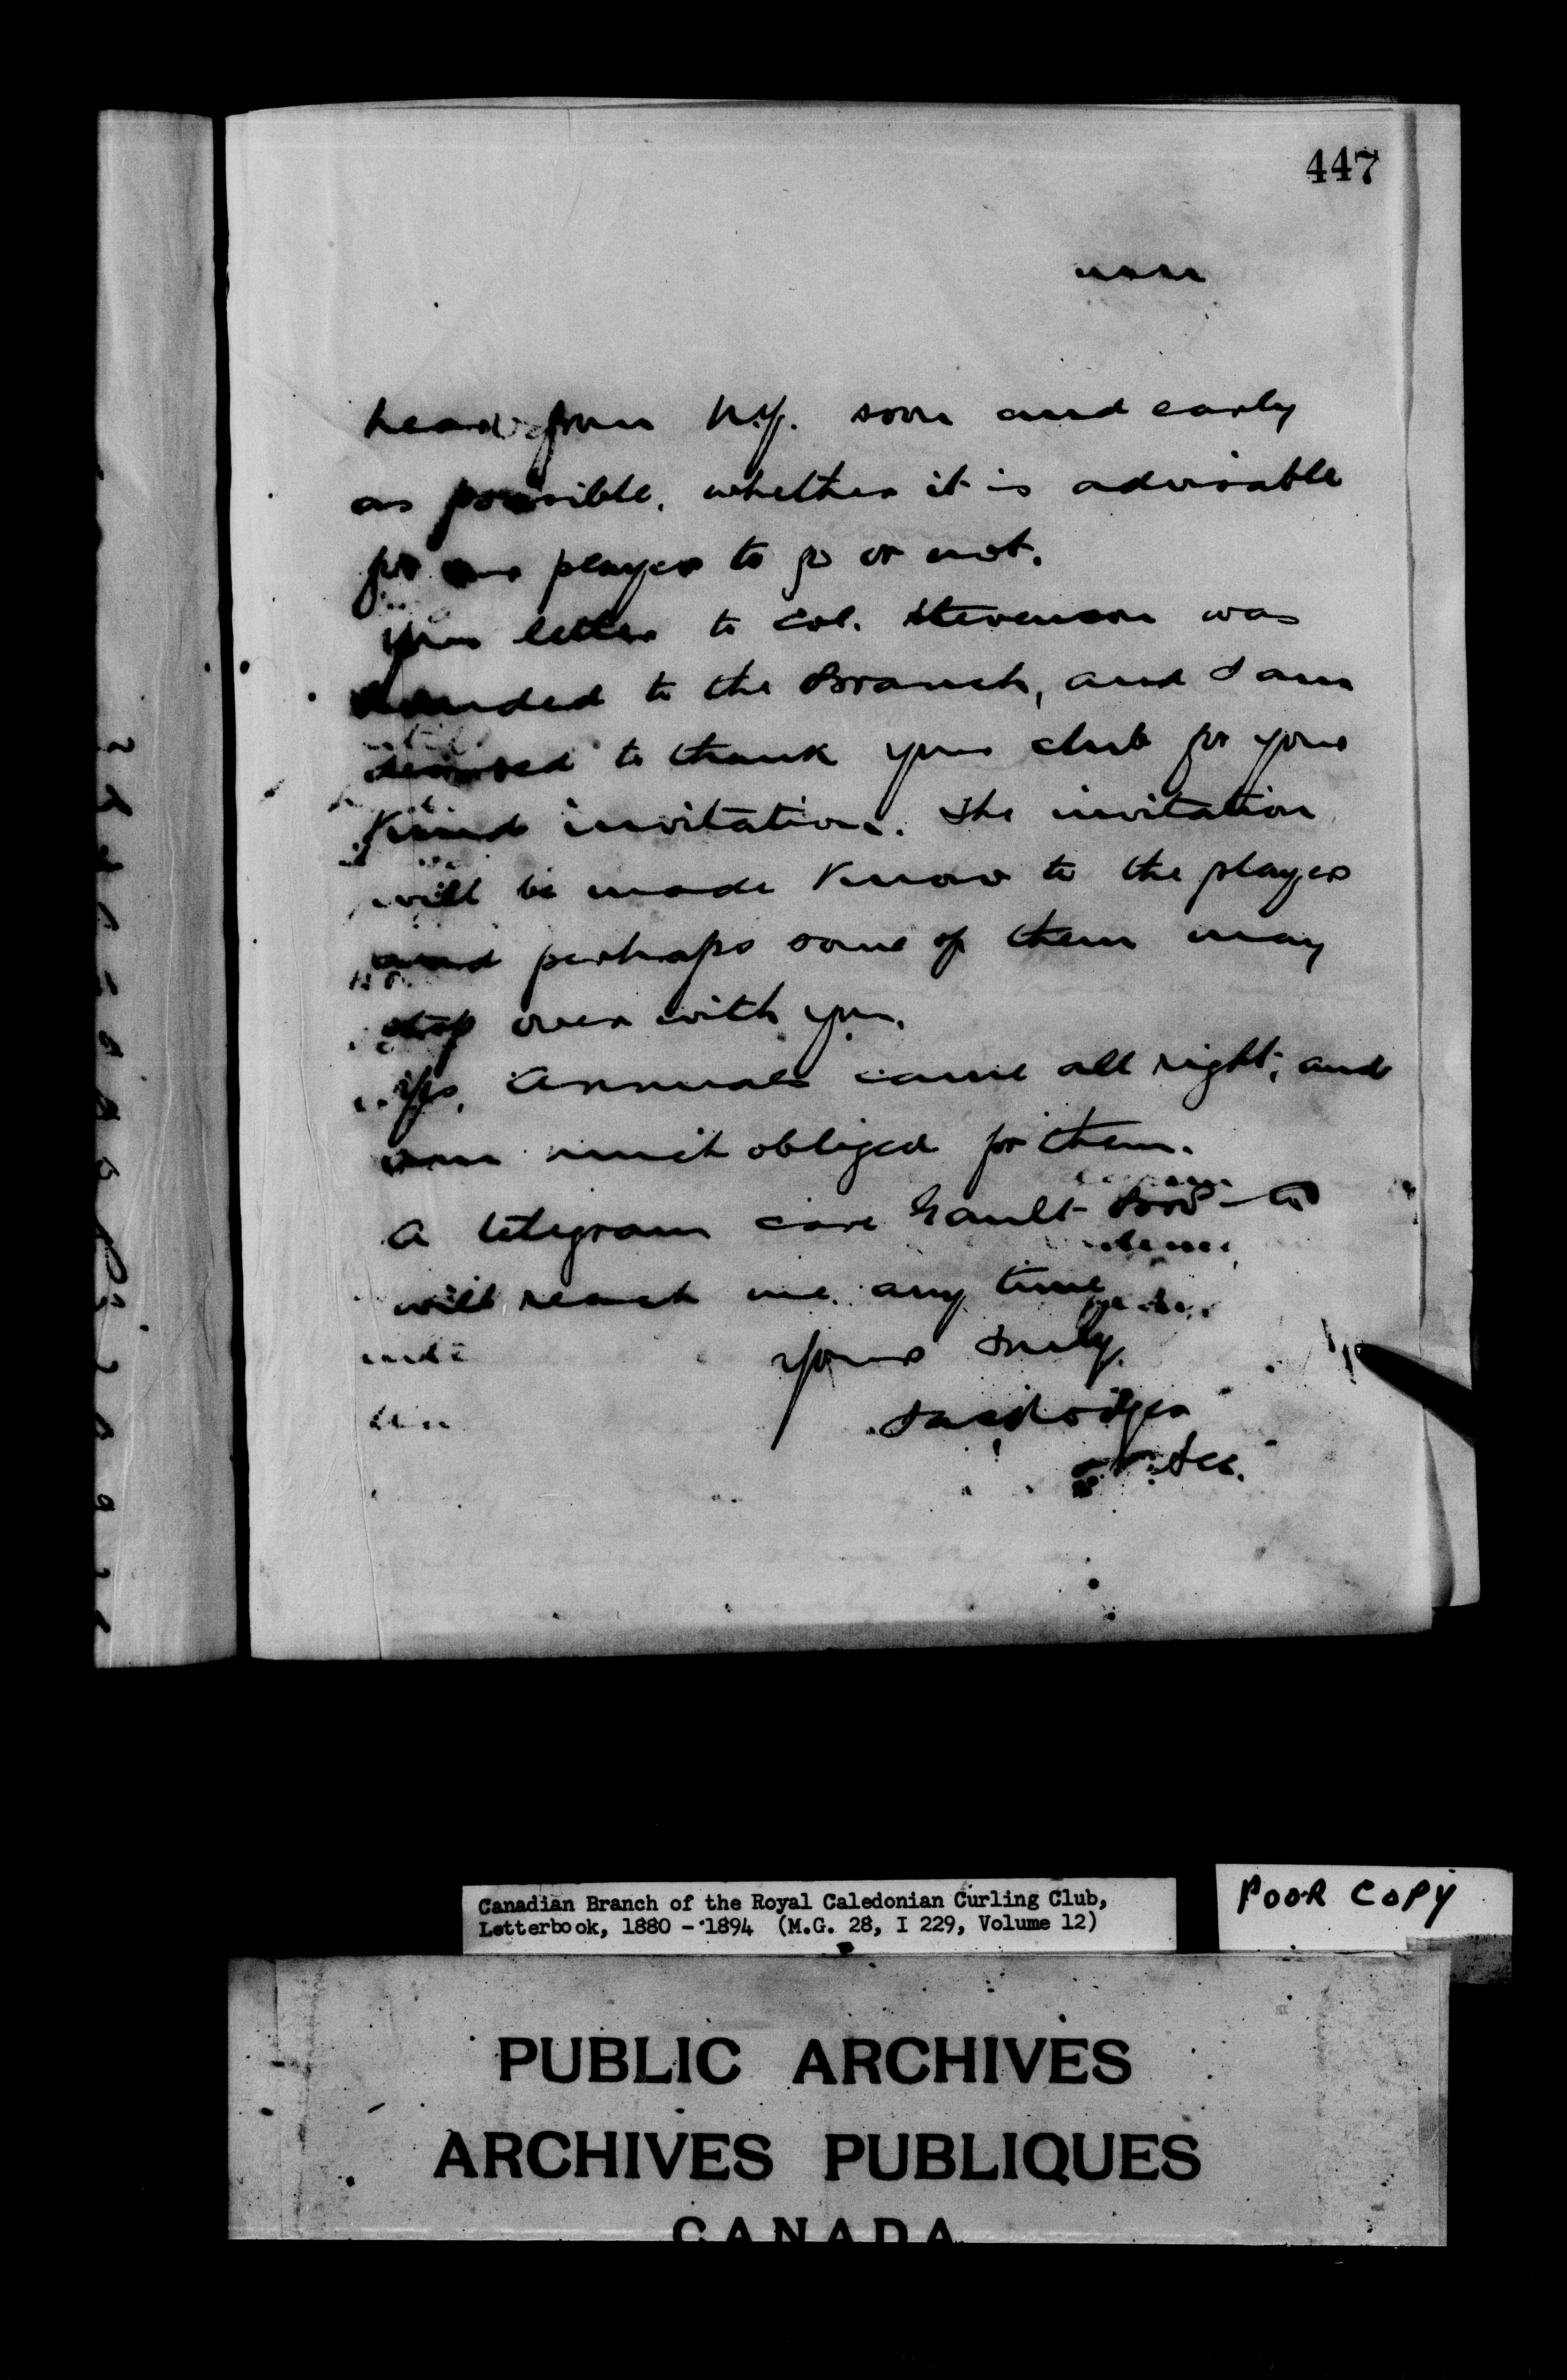 447
hear from N.Y. soon and early
as possible, whether it is advisable
for our players to go or not.
Your letter to Col. Stevenson was
handed to the Branch, and I am
to thank your club for your
kind invitation. The invitation
will be made know to the players
and perhaps some of them may
stop over with you.
Yes, Annuals came all right, and
am much obliged for them.
A telegram care Gault Bros & Co
will reach me any time
Yours truly,
Sec.
Canadian Branch of the Royal Caledonian Curling Club,
Letterbook, 1880 - 1894 (M.G. 28, I 229, Volume 12)
POOR COPY
PUBLIC ARCHIVES
ARCHIVES PUBLIQUES
CANADA